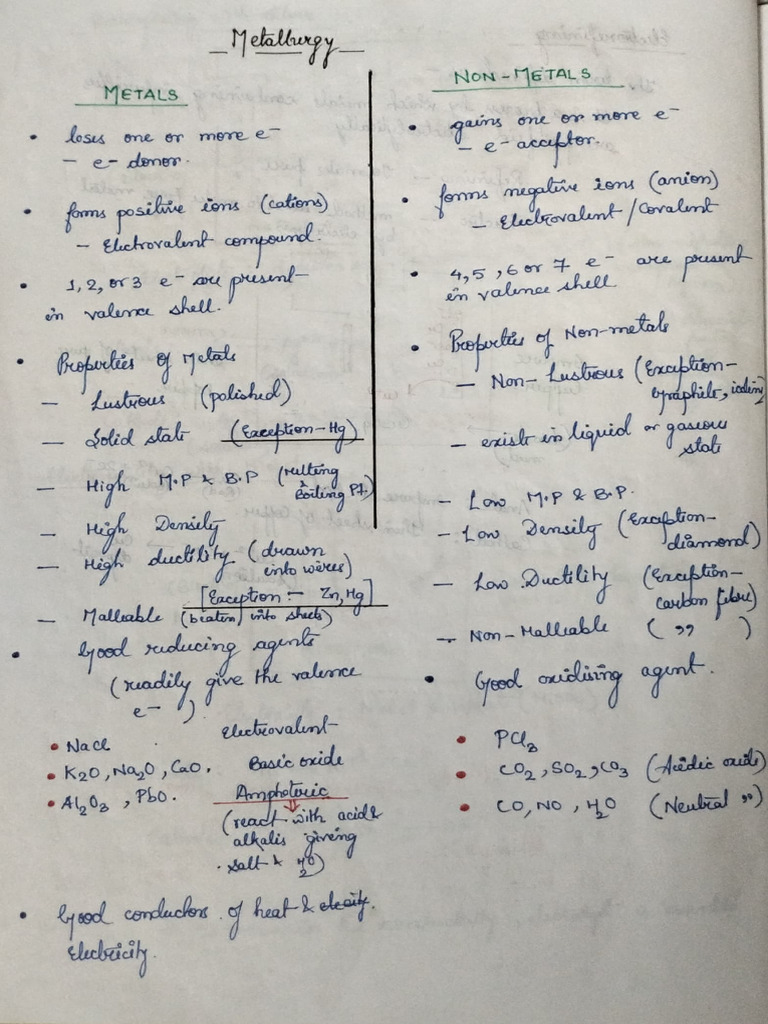 Metallurgy
METALS
• loses one or more e-
- e- donor.
• forms positive ions (cations)
- Electrovalent compound.
• 1, 2, or 3 e- are present
in valence shell.
• Properties of Metals
- Lustrous (polished)
- Solid state (Exception-Hg)
- High M.P & B.P (melting & Boiling Pt.)
- High Density
- High ductility (drawn into wires)
[Exception :- Zn, Hg]
- Malleable (beaten into sheets)
• Good reducing agents
(readily give the valence
e- )
• NaCl Electrovalent
• K2O, Na2O, CaO. Basic oxide
• Al2O3, PbO. Amphoteric
(react with acid &
alkalis giving
salt & H2O)
• Good conductors of heat &
Electricity.
NON-METALS
• gains one or more e-
- e- acceptor.
• forms negative ions (anion)
- Electrovalent / Covalent
• 4, 5, 6 or 7 e- are present
in valence shell
• Properties of Non-metals
- Non-Lustrous (Exception-
Graphite, iodine)
- exists in liquid or gaseous
state
- Low M.P & B.P.
- Low Density (Exception-
diamond)
- Low Ductility (Exception-
carbon fibre)
- Non-Malleable ( ,, )
• Good oxidising agent.
• PCl3
• CO2, SO2, CO3 (Acidic oxide)
• CO, NO, H2O (Neutral ,,)